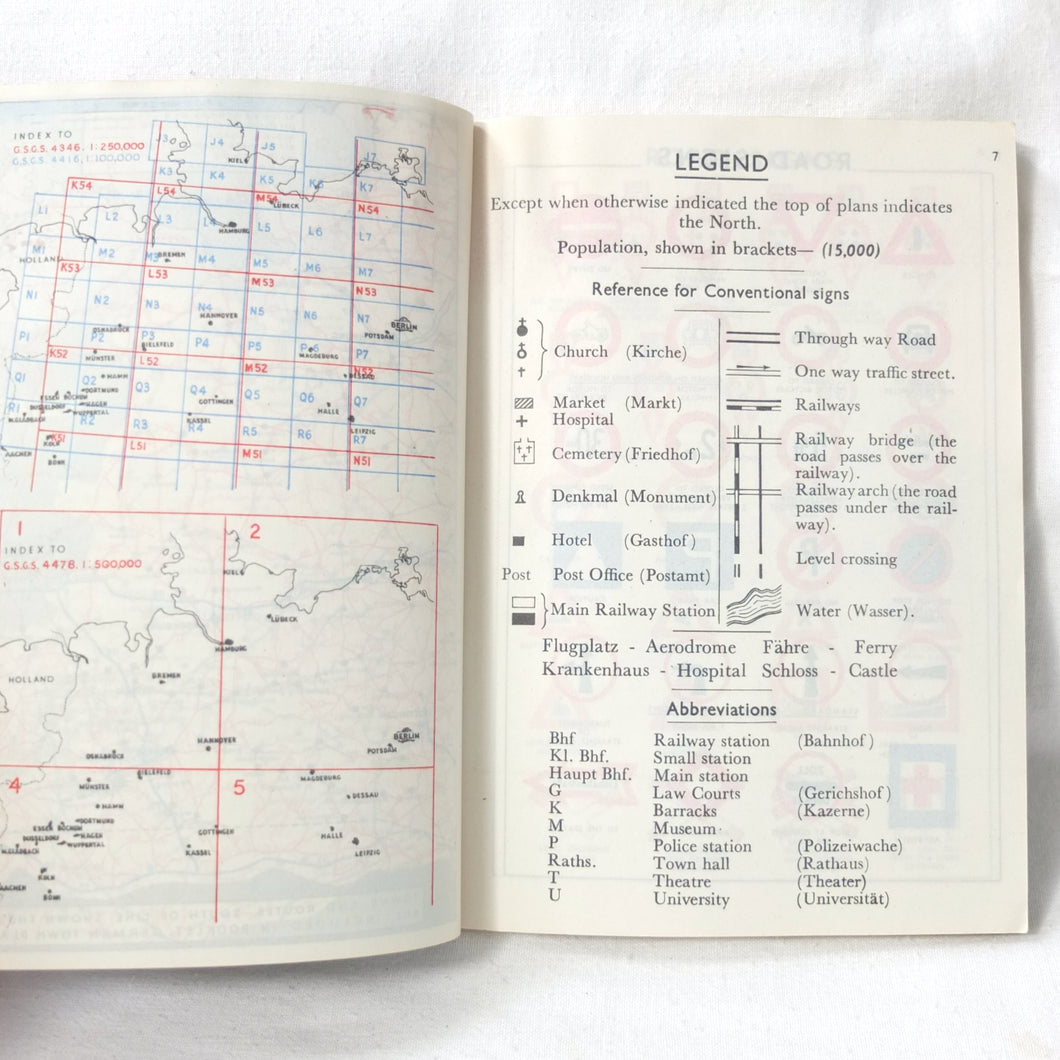 INDEX TO
G.S.G.S. 4346, 1:250,000
G.S.G.S. 4416, 1:100,000
J3 J4 J5 J7
KIEL
K3 K4 K5 K6 K7
K54 L54 M54 N54
LÜBECK
L1 L2 L3 L4 L5 L6 L7
HAMBURG
HOLLAND
M1 M2 M3 M4 M5 M6 M7
BREMEN
K53 L53 M53 N53
N1 N2 N3 N4 N5 N6 N7
HANNOVER
BERLIN
POTSDAM
OSNABRÜCK
P1 P2 P3 P4 P5 P6 P7
BIELEFELD
MAGDEBURG
MÜNSTER
K52 L52 M52 N52
DESSAU
Q1 Q2 Q3 Q4 Q5 Q6 Q7
HAMM
DORTMUND
ESSEN BOCHUM
HAGEN
DUSSELDORF
WUPPERTAL
GOTTINGEN
HALLE
R1 R2 R3 R4 R5 R6 R7
M.GLADBACH
KASSEL
LEIPZIG
K51 L51 M51 N51
KOLN
AACHEN
BONN
1 2
INDEX TO
G.S.G.S. 4478, 1:500,000
KIEL
LÜBECK
HAMBURG
HOLLAND
BREMEN
HANNOVER
BERLIN
POTSDAM
OSNABRÜCK
BIELEFELD
MAGDEBURG
4 5
MÜNSTER
DESSAU
HAMM
DORTMUND
ESSEN BOCHUM
HAGEN
DUSSELDORF
WUPPERTAL
GOTTINGEN
HALLE
M.GLADBACH
KASSEL
LEIPZIG
KOLN
AACHEN
BONN
7
LEGEND
Except when otherwise indicated the top of plans indicates
the North.
Population, shown in brackets— (15,000)
Reference for Conventional signs
Church (Kirche)
Market (Markt)
Hospital
Cemetery (Friedhof)
Denkmal (Monument)
Hotel (Gasthof)
Post Post Office (Postamt)
Main Railway Station
Through way Road
One way traffic street.
Railways
Railway bridge (the
road passes over the
railway).
Railway arch (the road
passes under the rail-
way).
Level crossing
Water (Wasser).
Flugplatz - Aerodrome Fähre - Ferry
Krankenhaus - Hospital Schloss - Castle
Abbreviations
Bhf Railway station (Bahnhof)
Kl. Bhf. Small station
Haupt Bhf. Main station
G Law Courts (Gerichshof)
K Barracks (Kazerne)
M Museum
P Police station (Polizeiwache)
Raths. Town hall (Rathaus)
T Theatre (Theater)
U University (Universität)